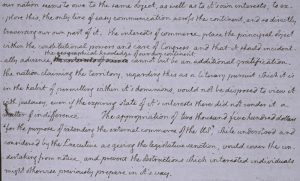 our nation seems to owe to the same object, as well as to it's own interests, to ex-
plore this, the only line of easy communication across the continent, and so directly
traversing our own part of it. the interests of commerce place the principal object
within the constitutional powers and care of Congress, and that it should incident-
the geographical knowledge of our own continent
ally advance cannot but be an additional gratification.
the nation claiming the territory, regarding this as a literary pursuit which it is
in the habit of permitting within it's dominions, would not be disposed to view it
with jealousy, even if the expiring state of it's interests there did not render it a
matter of indifference. The appropriation of two thousand five hundred dollars
"for the purpose of extending the external commerce of the US," while understood and
considered by the Executive as giving the legislative sanction, would cover the un-
dertaking from notice, and prevent the obstructions which interested individuals
might otherwise previously prepare in it's way.